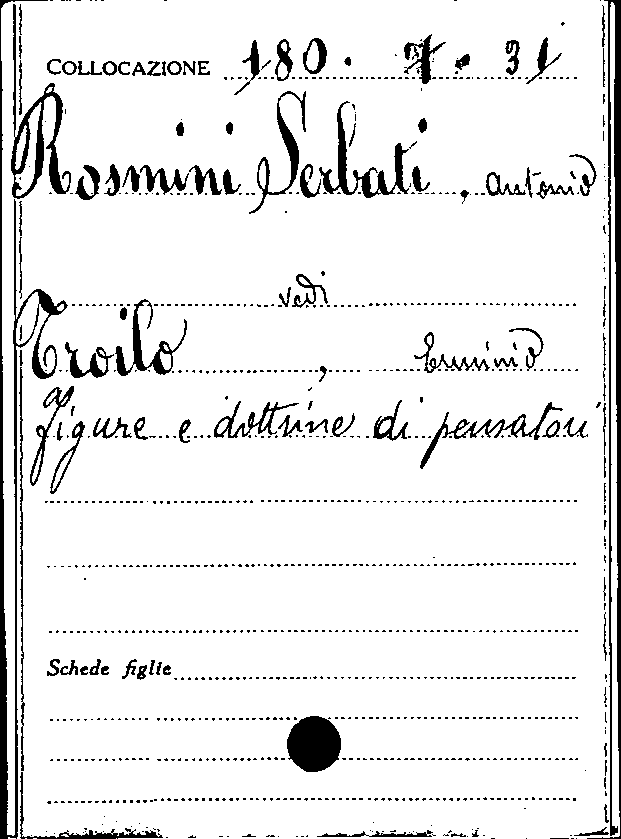 COLLOCAZIONE 180. 7. 31
Rosmini Serbati, Antonio
vedi
Troilo, Erminio
Figure e dottrine di pensatori
Schede figlie